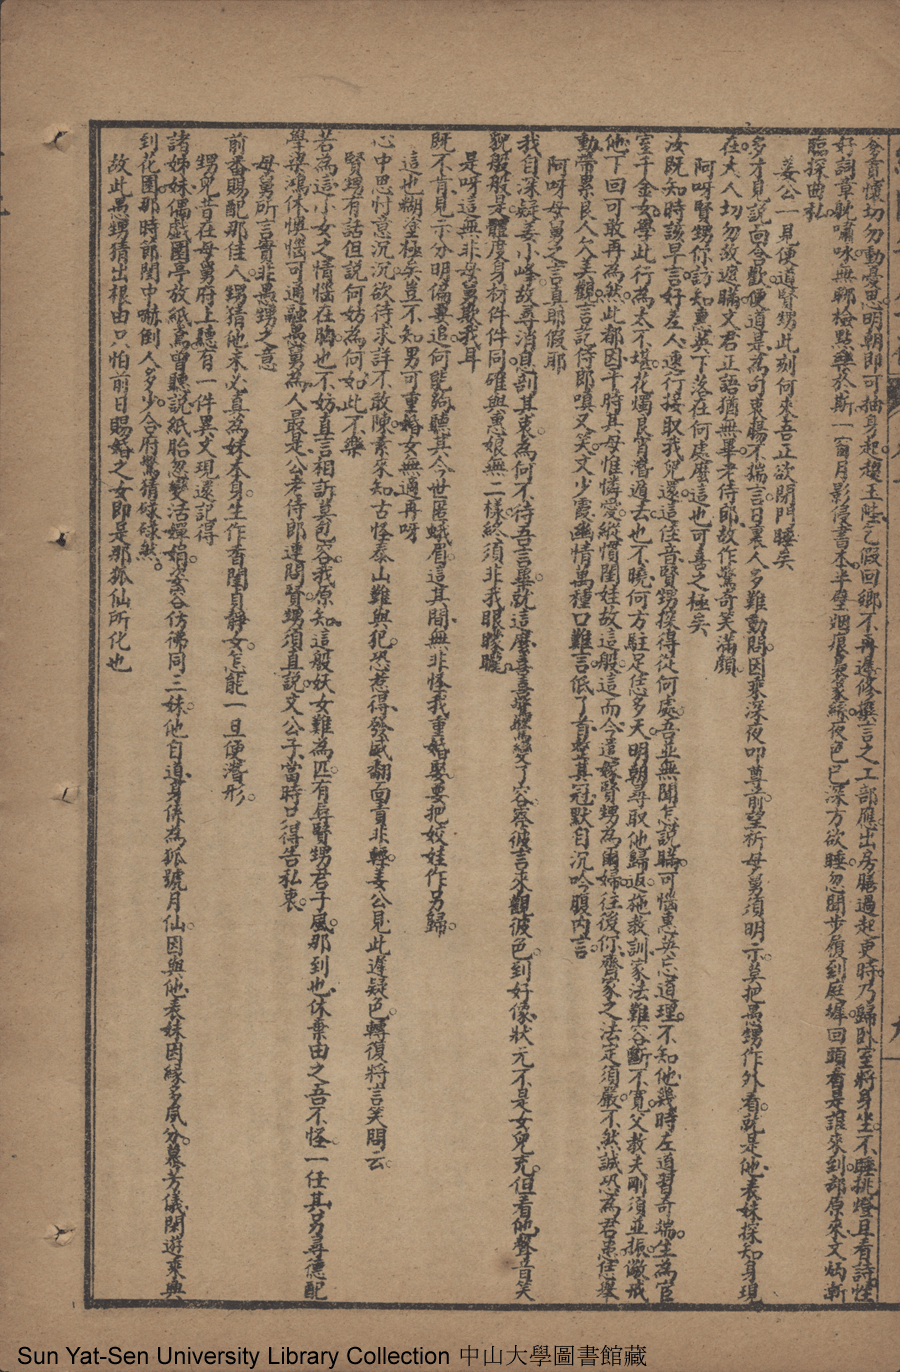 貪貴懷切勿動憂思明朝即可抽身起趨玉陛乞假回鄉不再遲修撰言之工部應出房膳過起更時乃歸卧室將身坐不睡挑燈且看詩性
好詞章耽嘯咏無聊檢點藥於斯一窗月影侵書本半壁烟痕裊篆絲夜色已深方欲睡忽聞步履到庭墀回頭看是誰來到却原來文炳漸
臨探曲私
姜公一見便道賢甥此刻何來吾正欲閉門睡矣
多才見說面含歡便道是為何衷腸不揣言日裏人多難動問因乘深夜叩尊前望祈母舅須明示莫把愚甥作外看就是他表妹探知身現
在大人切勿故遮瞞文君正語猶無畢老侍郎故作驚奇笑滿顏
阿呀賢甥你訪知蕙英下落在何處麼這也可喜之極矣
汝既知時該早言好差人速行接取我兒還這佳音賢甥探得從何處吾並無聞怎說瞞可惱蕙英忘道理不知他幾時左道習奇端生為宦
室千金女學此行為太不堪花燭良宵潛遁去也不曉何方駐足恁多天明朝尋取他歸返施教訓家法難容斷不寬父教夫剛須並振儆戒
他下回可敢再為然此都因于時其母惟憐愛縱慣閨娃故這般這而今遣嫁賢甥為爾婦往後你齊家之法定須嚴不然誠恐為君患恁舉
動帶累良人欠美觀言訖侍郎嗔又笑文少霞幽情萬種口難言低了首整其冠默自沉吟腹內言
阿呀母舅之言真耶假耶
我自深疑姜小峰故尋消息剖其衷為何不待吾言畢就這麼喜喜驚驚變了容察彼言來觀彼色到好像狀元不是女兒充但看他聲音笑
貌般般是體度身材件件同確與蕙娘無二樣終須非我眼朦朧
是呀這無非母舅欺我耳
既不肯見示分明偏要追何能夠聽其今世匿蛾眉這其間無非怪我重婚娶要把姣娃作另歸
這也糊塗極矣豈不知男可重婚女無適再呀
心中思忖意沉沉欲待求詳不敢陳素來知古怪泰山難與犯恐惹得發威翻面責非輕姜公見此遲疑色轉復將言笑問云
賢甥有話但說何妨為何如此不樂
若為這小女之情惱在胸也不妨直言相訴莫包容我原知這般妖女難為匹有辱賢甥君子風那到也休棄由之吾不怪一任其另尋德配
學梁鴻休懊惱可通融愚舅為人最是公老侍郎連問賢甥須直說文公子當時只得告私衷
母舅所言實非愚甥之意
前番賜配那佳人甥猜他本必真為妹本身生作香閨自靜女怎能一旦便潛形
甥兒昔在母舅府上聽有一件異文現還記得
諸姊妹偶戲園亭放紙鳶曾聽說紙胎忽變活嬋娟姿容彷彿同三妹他自道身係為狐號月仙因與他表妹因緣多夙分慕芳儀閑遊來與
到花園那時節閨中嚇倒人多少合府驚猜碌碌然
故此愚甥猜出根由只怕前日賜婚之女即是那狐仙所化也
Sun Yat-Sen University Library Collection 中山大學圖書館藏